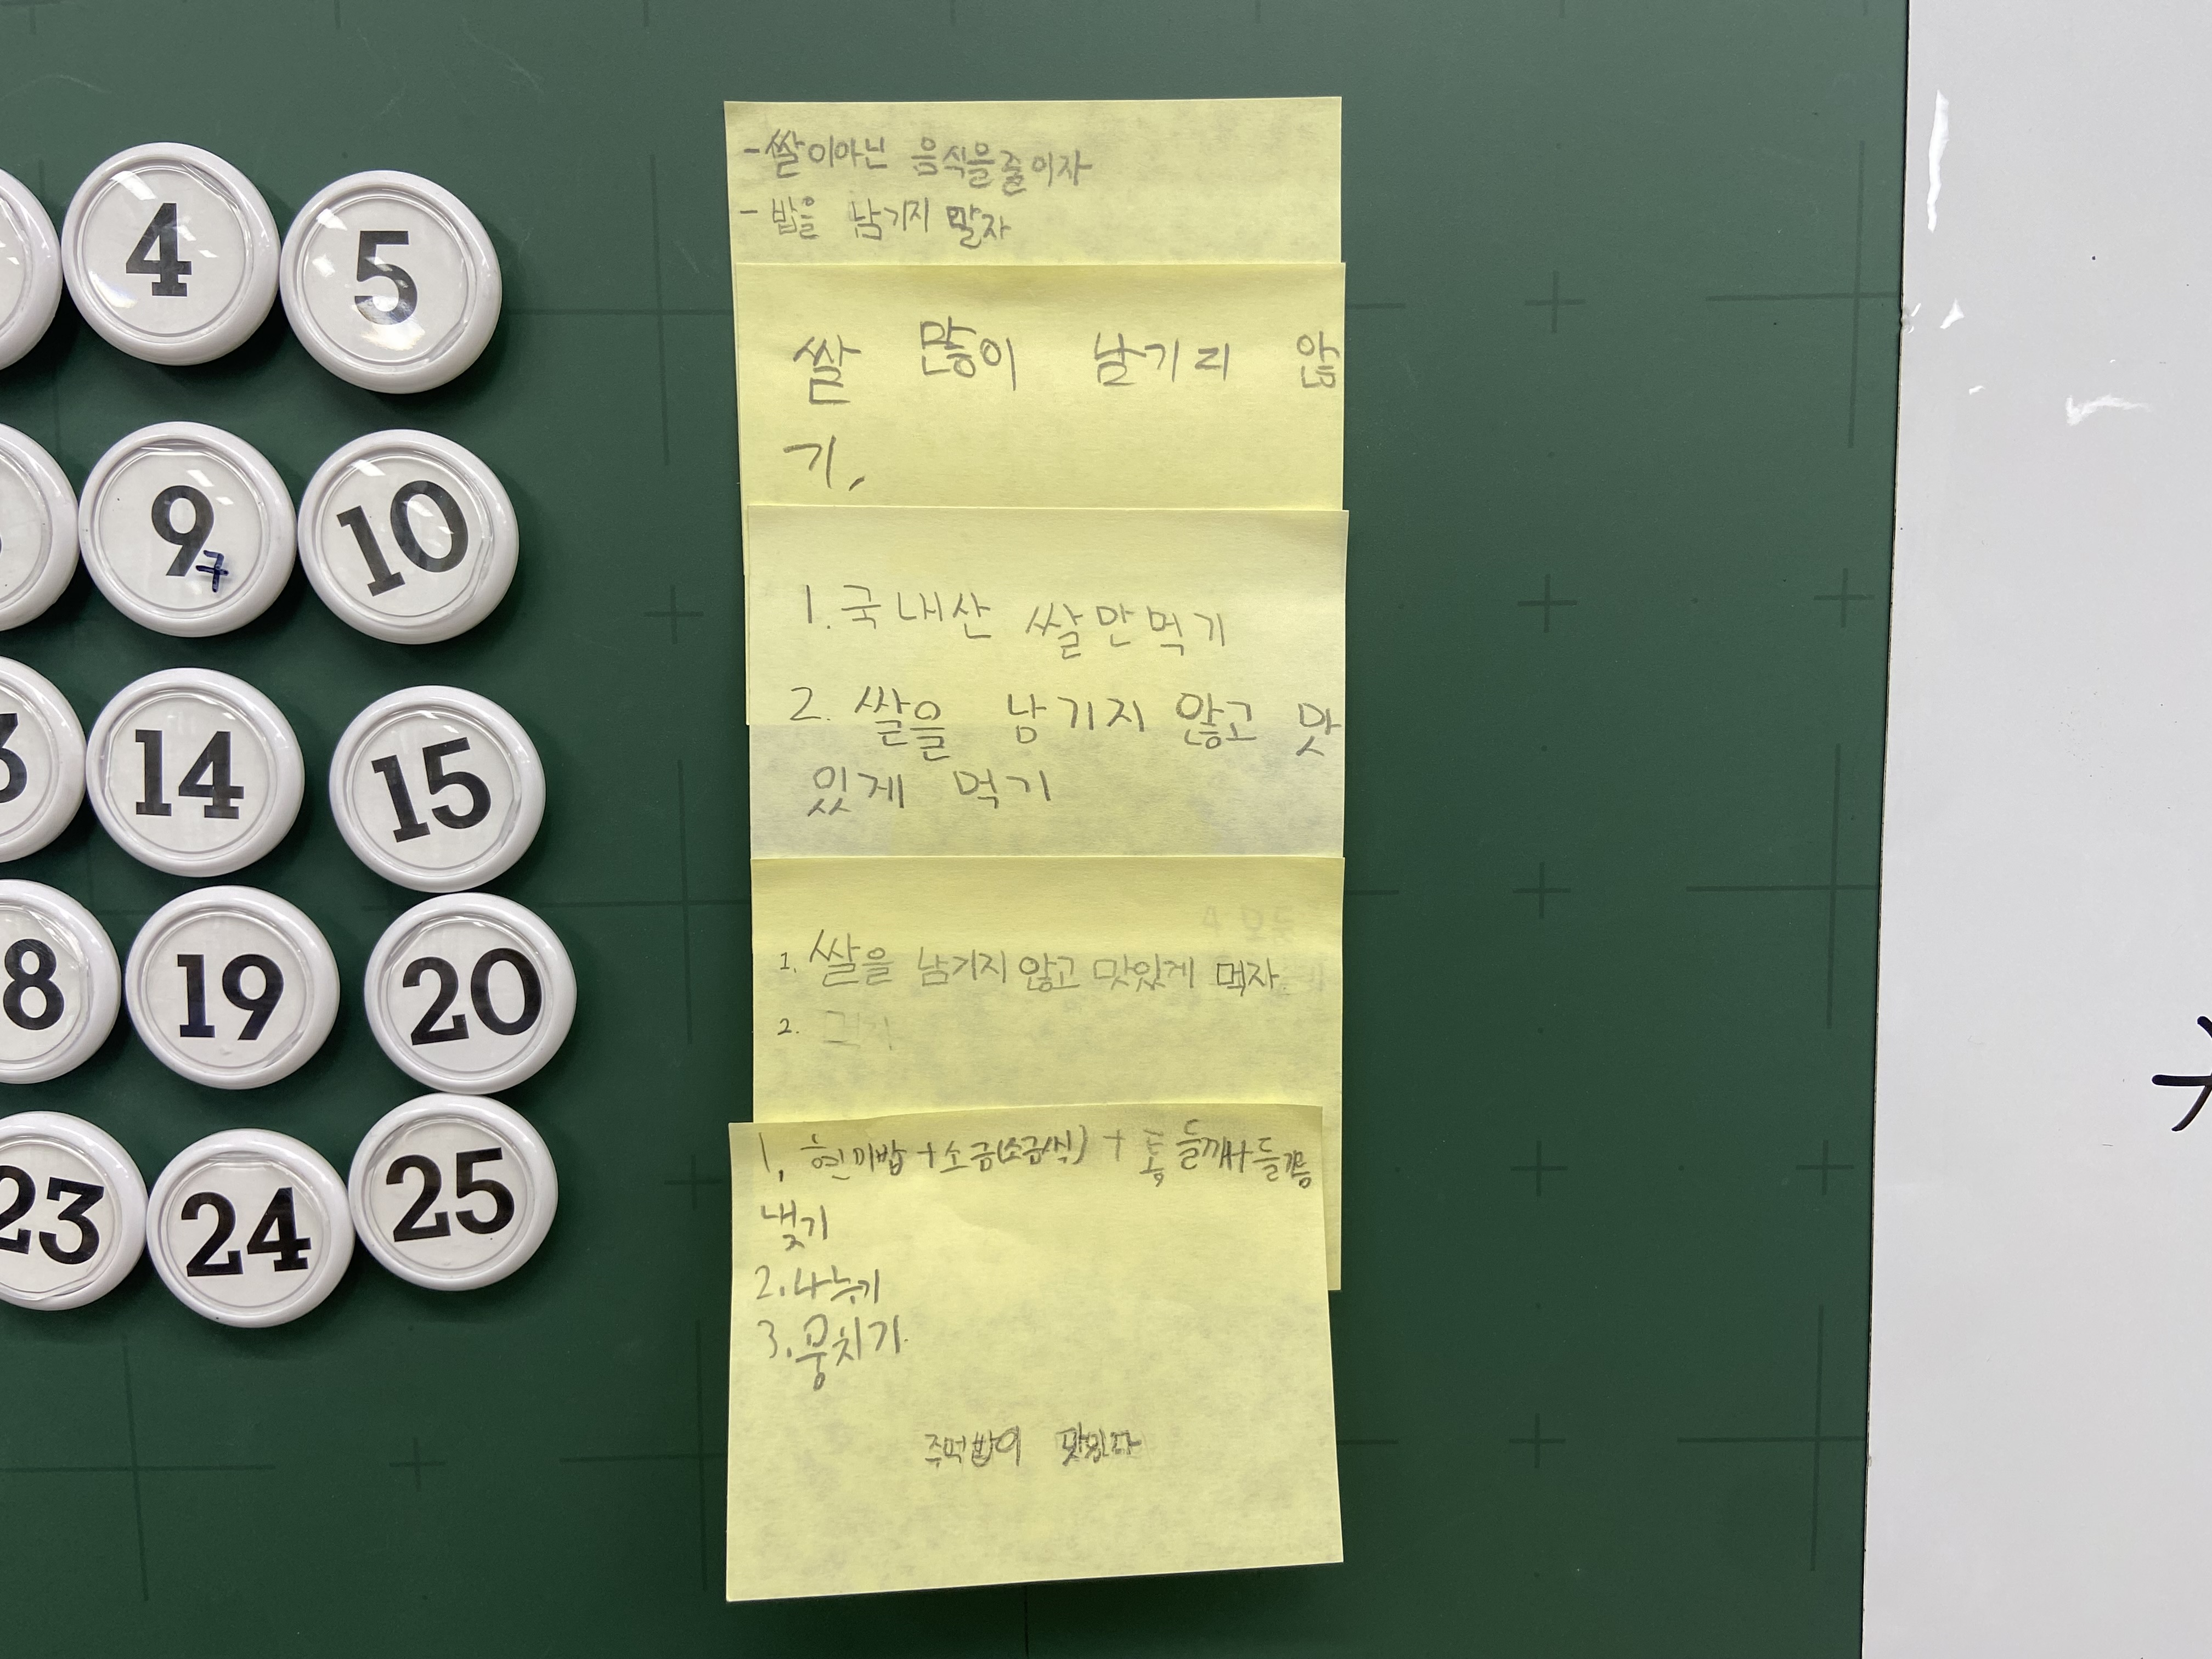 4
5
9
7
10
14
15
8
19
20
23
24
25
-쌀이아닌 음식을줄이자
- 밥을 남기지 말자
쌀 많이 남기리 않
기,
1. 국내산 쌀만먹기
2. 쌀을 남기지 않고 맛
있게 먹기
1. 쌀을 남기지 않고 맛있게 먹자
2.
1, 현미밥 + 소금(소금식) + 통 들깨+들기름
넣기
2. 나누기
3. 뭉치기.
주먹밥이 맛있다